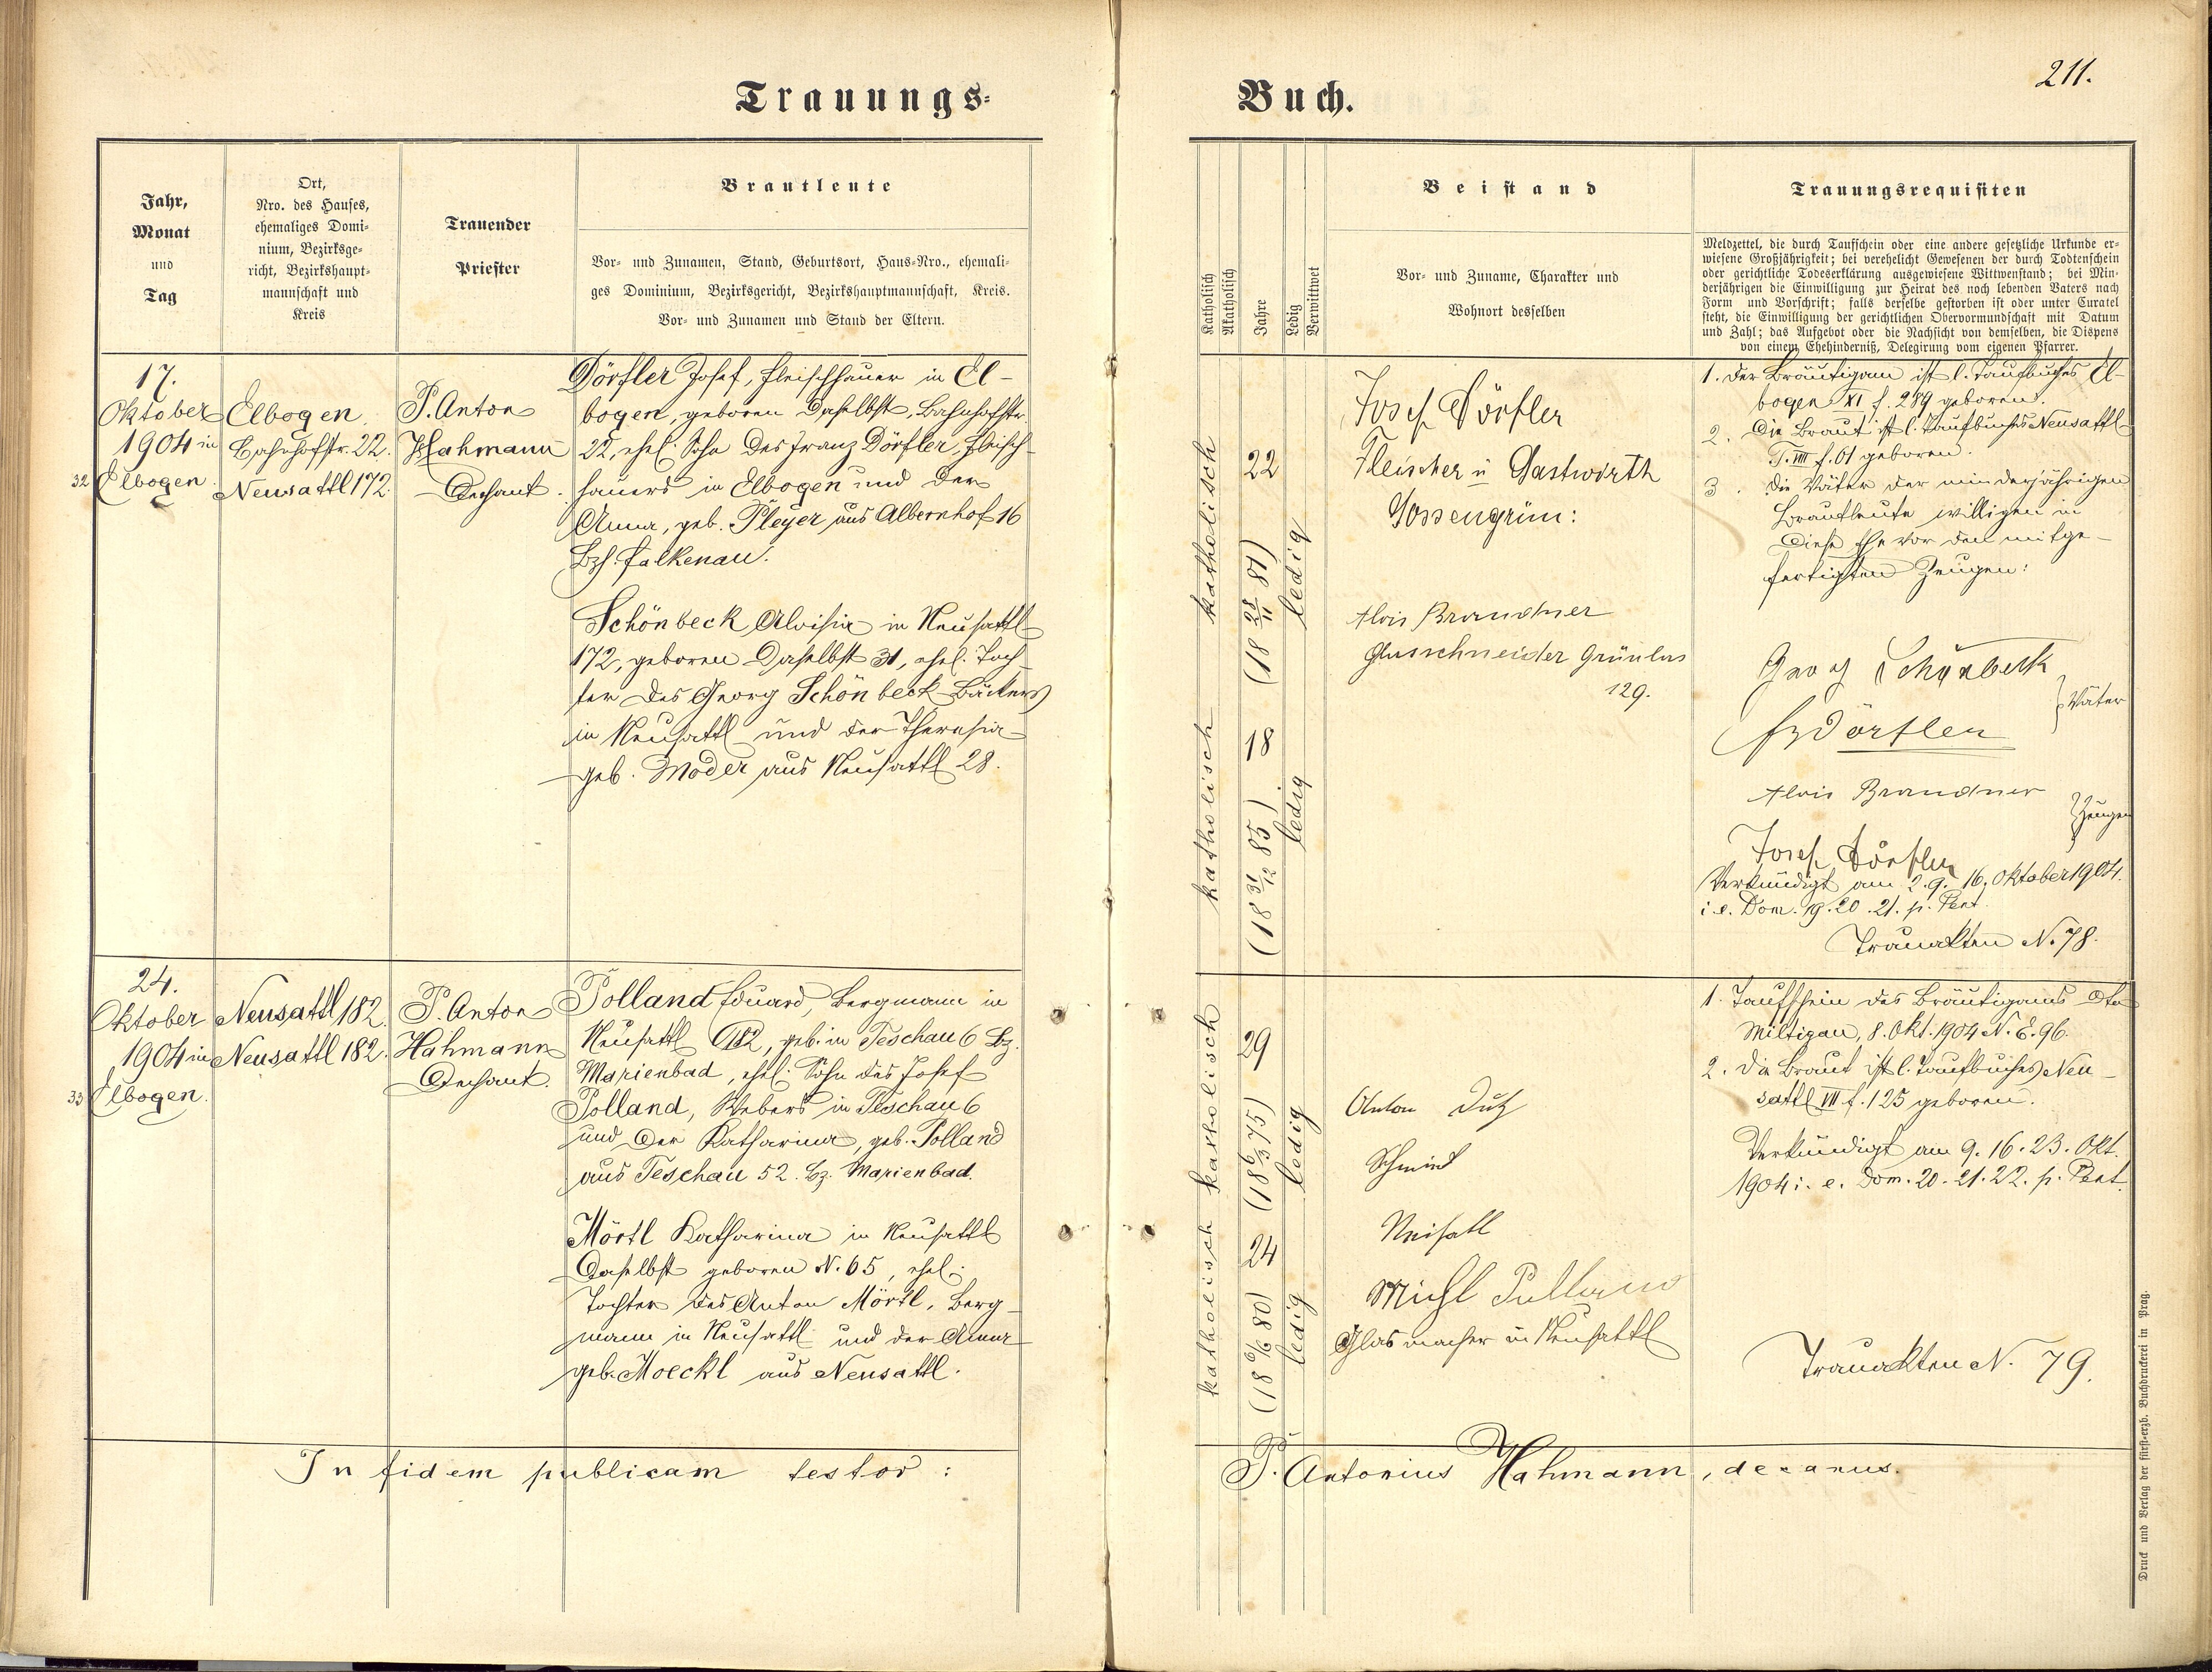 211.
Trauungs-
Buch.
Jahr,
Monat
und
Tag
Ort,
Nro. des Hauses,
ehemaliges Domi-
nium, Bezirksge-
richt, Bezirkshaupt-
mannschaft und
Kreis
Trauender
Priester
Brautleute
Vor- und Zunamen, Stand, Geburtsort, Haus-Nro., ehemali-
ges Dominium, Bezirksgericht, Bezirkshauptmannschaft, Kreis.
Vor- und Zunamen und Stand der Eltern.
Katholisch
Akatholisch
Jahre
Ledig
Verwittwet
Beistand
Vor- und Zuname, Charakter und
Wohnort desselben
Trauungsrequisiten
Meldzettel, die durch Taufschein oder eine andere gesetzliche Urkunde er-
wiesene Großjährigkeit; bei verehelicht Gewesenen der durch Todtenschein
oder gerichtliche Todeserklärung ausgewiesene Wittwenstand; bei Min-
derjährigen die Einwilligung zur Heirat des noch lebenden Vaters nach
Form und Vorschrift; falls derselbe gestorben ist oder unter Curatel
steht, die Einwilligung der gerichtlichen Obervormundschaft mit Datum
und Zahl; das Aufgebot oder die Nachsicht von demselben, die Dispens
von einem Ehehinderniß, Delegirung vom eigenen Pfarrer.
17.
Oktober
1904 in
32 Elbogen.
Elbogen
Bahnhofstr. 22.
Neusattl 172.
P. Anton
Hahmann
Dechant.
Dörfler Josef, Fleischhauer in El-
bogen, geboren daselbst, Bahnhofstr.
22, ehel. Sohn des Franz Dörfler, Fleisch-
hauers in Elbogen und der
Anna, geb. Pleyer aus Albernhof 16
Bzh. Falkenau.
Schönbeck Aloisia in Neusattl
172, geboren daselbst 31, ehel. Toch-
ter des Georg Schönbeck Bäckers
in Neusattl und der Theresia
geb. Moder aus Neusattl 28.
katholisch
22
(18 28/11 81)
ledig
katholisch
18
(18 31/12 85)
ledig
Josef Dörfler
Fleischer u Gastwirth
Gossengrün:
Alois Brandner
Glasschneider Grünlas
129.
1. Der Bräutigam ist l. Taufbuches El-
bogen XI f. 289 geboren.
2. Die Braut ist l. Taufbuches Neusattl
T. VIII f. 61 geboren.
3. Die Väter der minderjährigen
Brautleute willigen in
diese Ehe vor den mitge-
fertigten Zeugen:
Georg Schönbeck
Fz Dörfler
Väter
Alois Brandner
Josef Dörfler
Zeugen
Verkündigt am 2. 9. 16. Oktober 1904.
i. e. Dom. 19. 20. 21. p. Pent.
Trauakten N. 78.
24.
Oktober
1904 in
33 Elbogen.
Neusattl 182.
Neusattl 182.
P. Anton
Hahmann
Dechant.
Polland Eduard, Bergmann in
Neusattl 182, geb. in Teschau 6 Bz.
Marienbad, ehel. Sohn des Josef
Polland, Webers in Teschau 6
und der Katharina, geb. Polland
aus Teschau 52. Bz. Marienbad.
Mörtl Katharina in Neusattl
daselbst geboren N. 65, ehel.
Tochter des Anton Mörtl, Berg-
mann in Neusattl und der Anna
geb. Moeckl aus Neusattl.
katholisch
29
(18 6/3 75)
ledig
katholisch
24
(18 6/6 80)
ledig
Anton Dutz
Schmied
Neisatl
Michl Pulland
Glasmacher in Neusattl
1. Taufschein des Bräutigams dto
Miltigau, 8. Okt. 1904 N. E. 96.
2. Die Braut ist l. Taufbuches Neu-
sattl VII f. 125 geboren.
Verkündigt am 9. 16. 23. Okt.
1904 i. e. Dom. 20. 21. 22. p. Pent.
Trauakten N. 79.
In fidem publicam testor:
P. Antonius Hahmann, decanus.
Druck und Verlag der fürst-erzb. Buchdruckerei in Prag.